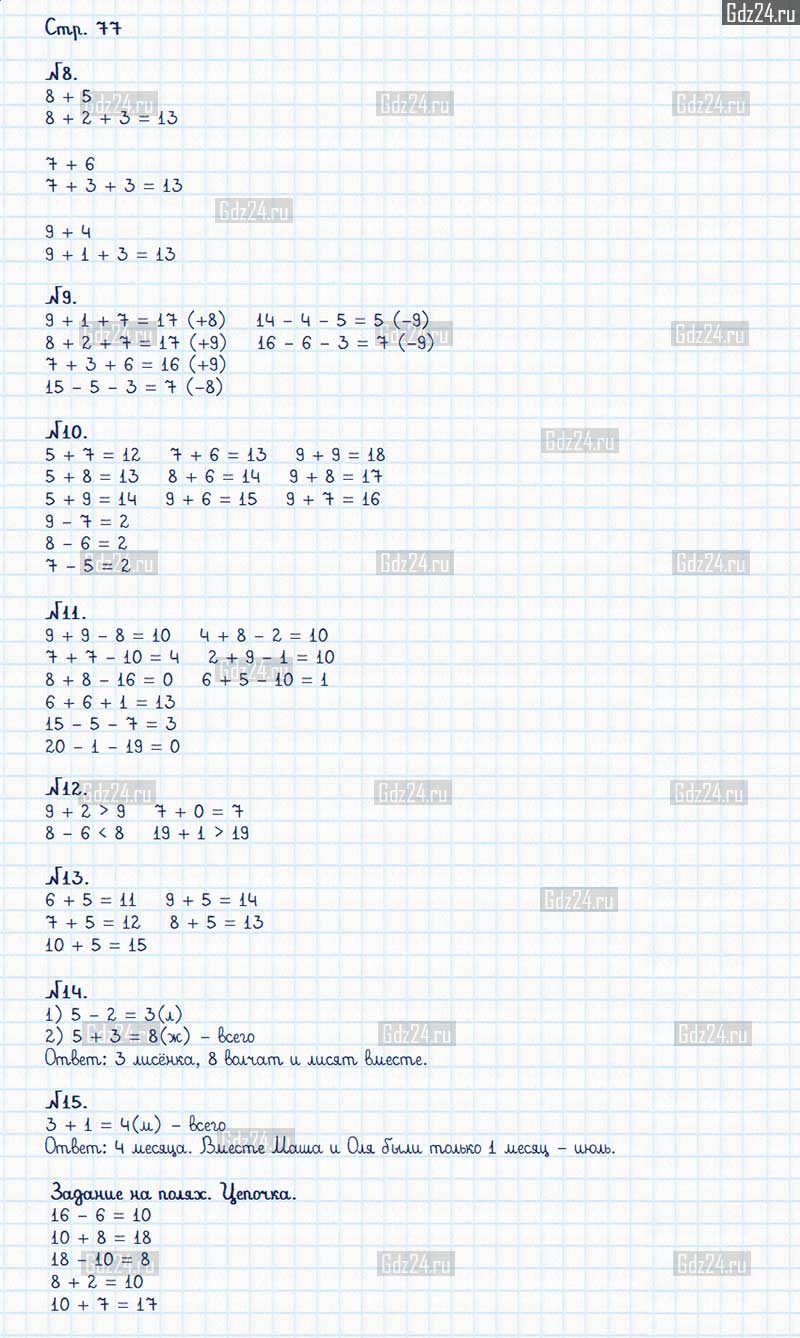 Gdz24.ru
Стр. 77
№8.
8 + 5
8 + 2 + 3 = 13
7 + 6
7 + 3 + 3 = 13
9 + 4
9 + 1 + 3 = 13
№9.
9 + 1 + 7 = 17 (+8) 14 - 4 - 5 = 5 (-9)
8 + 2 + 7 = 17 (+9) 16 - 6 - 3 = 7 (-9)
7 + 3 + 6 = 16 (+9)
15 - 5 - 3 = 7 (-8)
№10.
5 + 7 = 12 7 + 6 = 13 9 + 9 = 18
5 + 8 = 13 8 + 6 = 14 9 + 8 = 17
5 + 9 = 14 9 + 6 = 15 9 + 7 = 16
9 - 7 = 2
8 - 6 = 2
7 - 5 = 2
№11.
9 + 9 - 8 = 10 4 + 8 - 2 = 10
7 + 7 - 10 = 4 2 + 9 - 1 = 10
8 + 8 - 16 = 0 6 + 5 - 10 = 1
6 + 6 + 1 = 13
15 - 5 - 7 = 3
20 - 1 - 19 = 0
№12.
9 + 2 > 9 7 + 0 = 7
8 - 6 < 8 19 + 1 > 19
№13.
6 + 5 = 11 9 + 5 = 14
7 + 5 = 12 8 + 5 = 13
10 + 5 = 15
№14.
1) 5 - 2 = 3(л)
2) 5 + 3 = 8(ж) - всего
Ответ: 3 лисёнка, 8 волчат и лисят вместе.
№15.
3 + 1 = 4(м) - всего
Ответ: 4 месяца. Вместе Маша и Оля были только 1 месяц - июль.
Задание на полях. Цепочка.
16 - 6 = 10
10 + 8 = 18
18 - 10 = 8
8 + 2 = 10
10 + 7 = 17